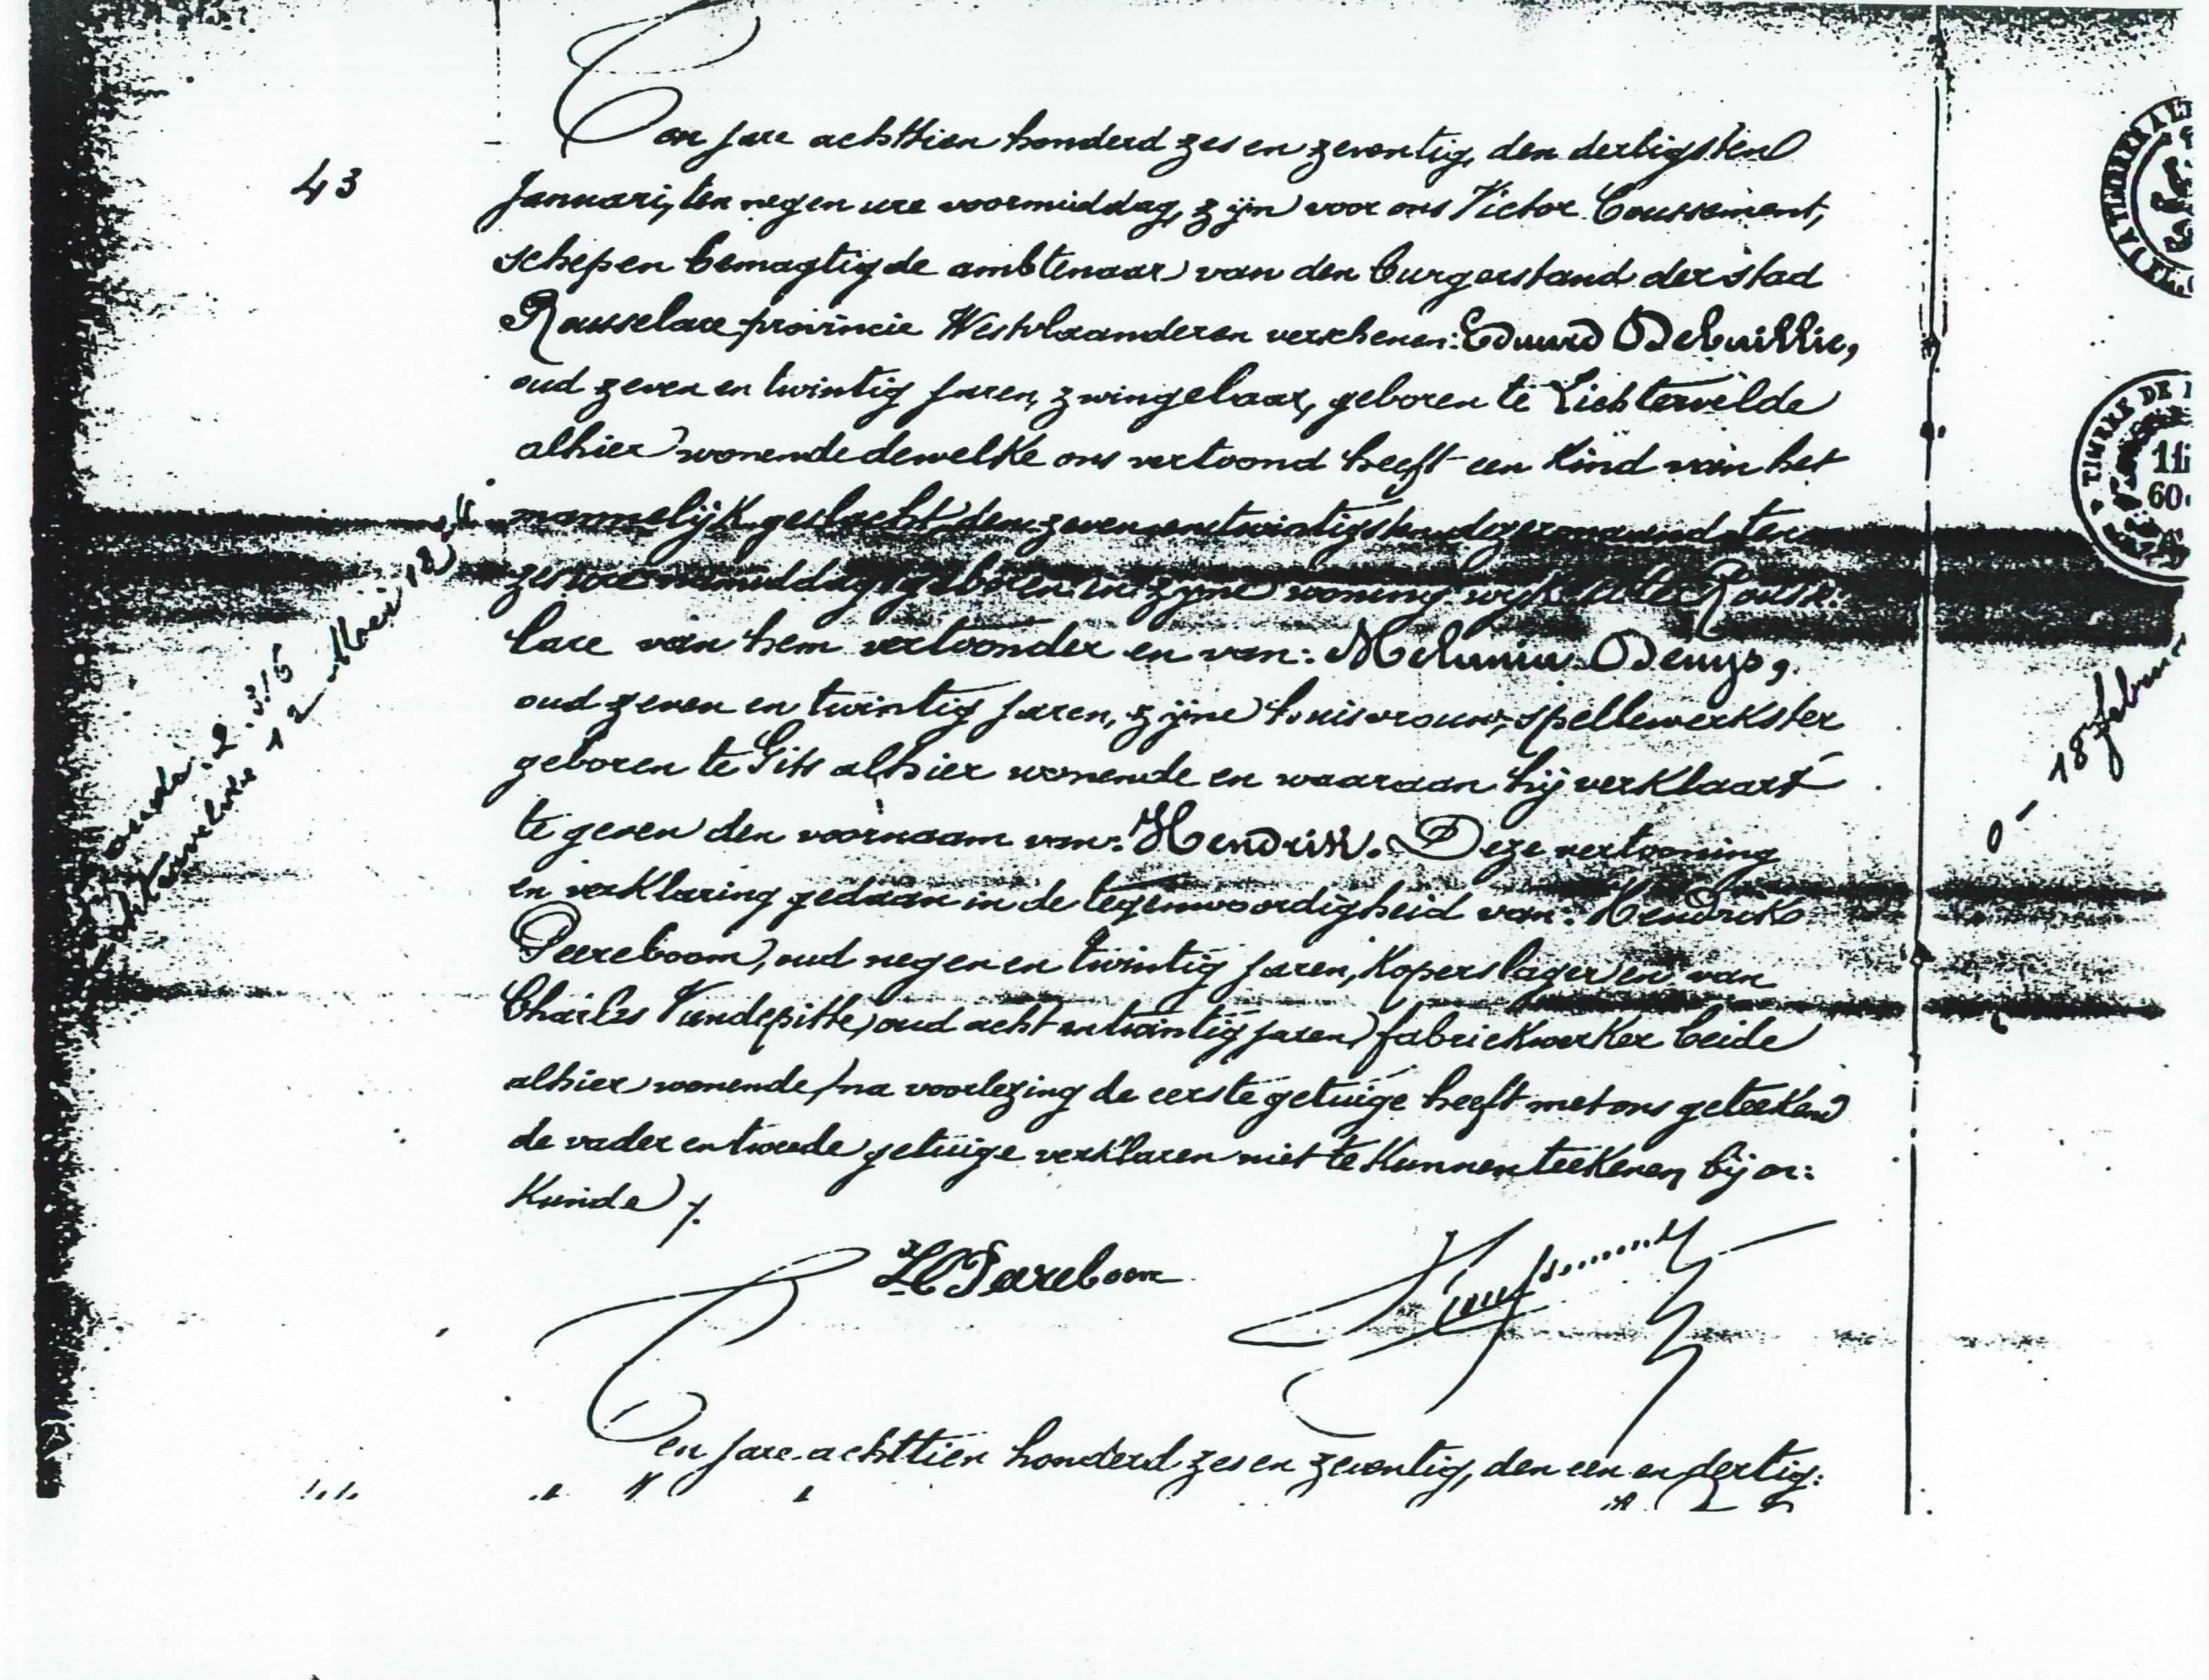 43
Ten jare achttien honderd zes en zeventig, den dertigsten
Januari, ten negen ure voormiddag, zijn voor ons Victor Coussement,
schepen bemagtigde ambtenaar van den burgerstand der stad
Rousselare provincie Westvlaanderen verschenen: Eduard Debaillie,
oud zeven en twintig jaren, zwingelaar, geboren te Lichtervelde
alhier wonende dewelke ons vertoond heeft een kind van het
mannelijk geslacht den zeven en twintigsten dezer maand ten
zes ure namiddag geboren in zijne woning wijk Rousse:
lare van hem vertoonder en van: Melania Denys,
oud zeven en twintig jaren, zijne huisvrouw, spellewerkster
geboren te Gits alhier wonende en waaraan hij verklaart
te geven den voornaam van: Hendrik. Deze vertooning
en verklaring gedaan in de tegenwoordigheid van: Hendrik
Peereboom, oud negen en twintig jaren, koperslager en van
Charles Vandepitte, oud acht en twintig jaren, fabriekwerker beide
alhier wonende, na voorlezing de eerste getuige heeft met ons geteekend
de vader en tweede getuige verklaren niet te kunnen teekenen, bij or:
kunde ./.
H Peereboom
Ten jare achttien honderd zes en zeventig, den een en dertig:
TIMBRE DE
60